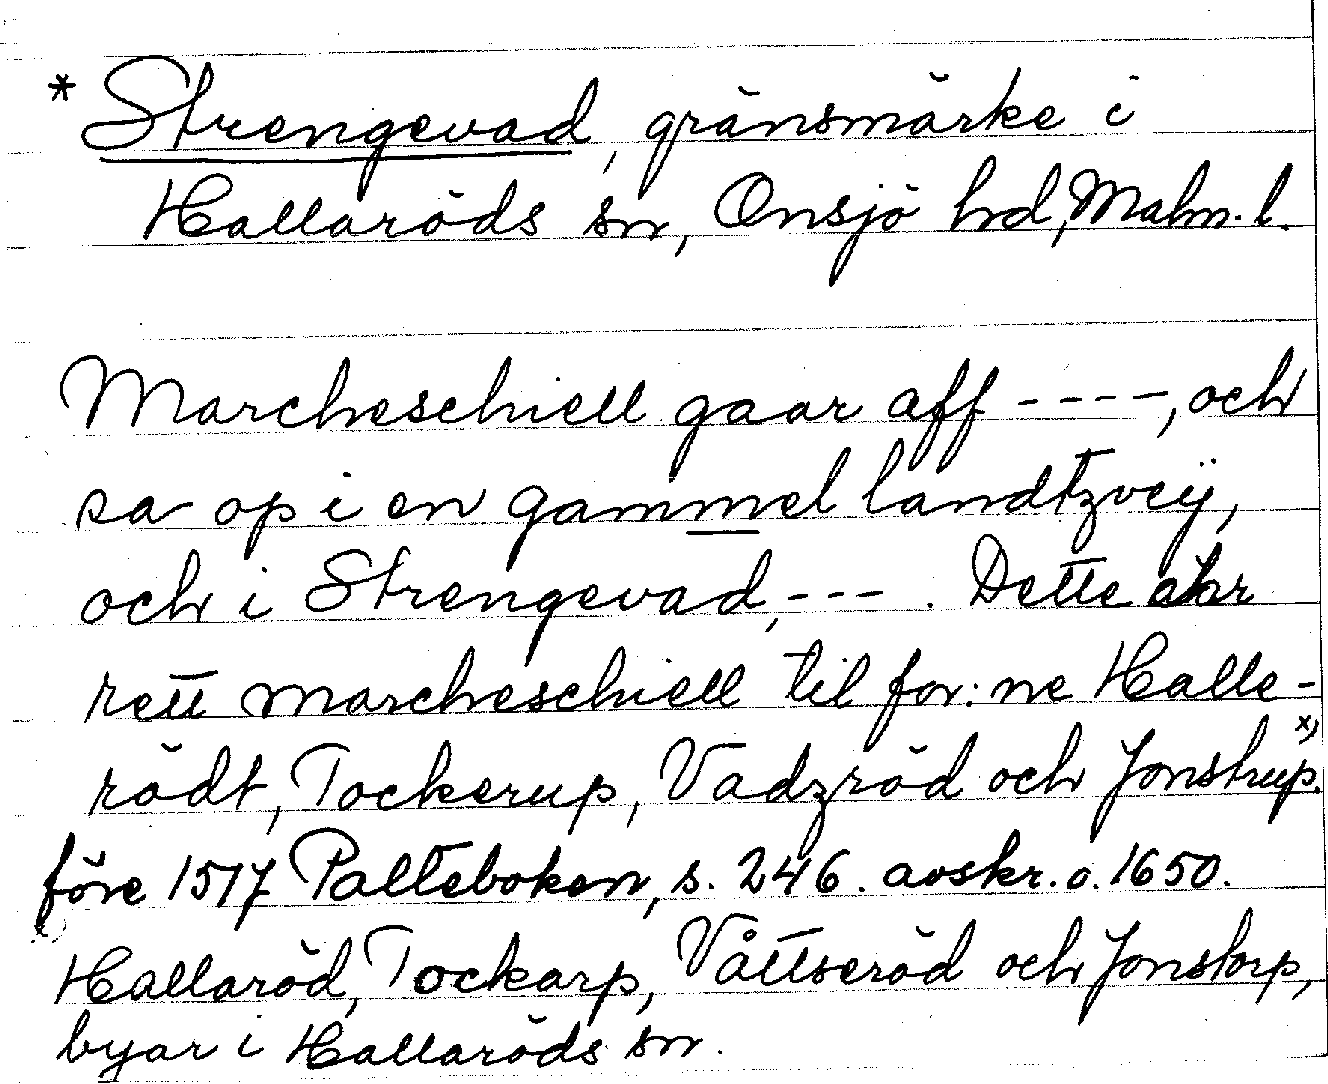 * Strengevad, gränsmärke i
Hallaröds sn, Onsjö hd, Malm. l.
Marcheschiell gaar aff ----, och
sa op i en gammel landtzveÿ,
och i Strengevad, --- . Dette ehr
rett marcheschiell til for:ne Halle-
rödt, Tockerup, Vadzröd och Jonstrup. x)
före 1517 Palteboken, s. 246. avskr. o. 1650.
Hallaröd, Tockarp, Våttseröd och Jonstorp,
byar i Hallaröds sn.